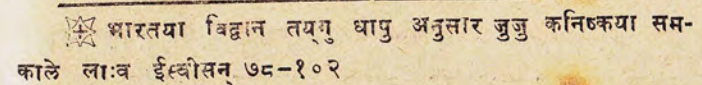 भारतया बिद्वान तय्‌गु धापु अनुसार जुजु कनिष्कया सम-
काले लाःव ईस्वीसन् ७८-१०२